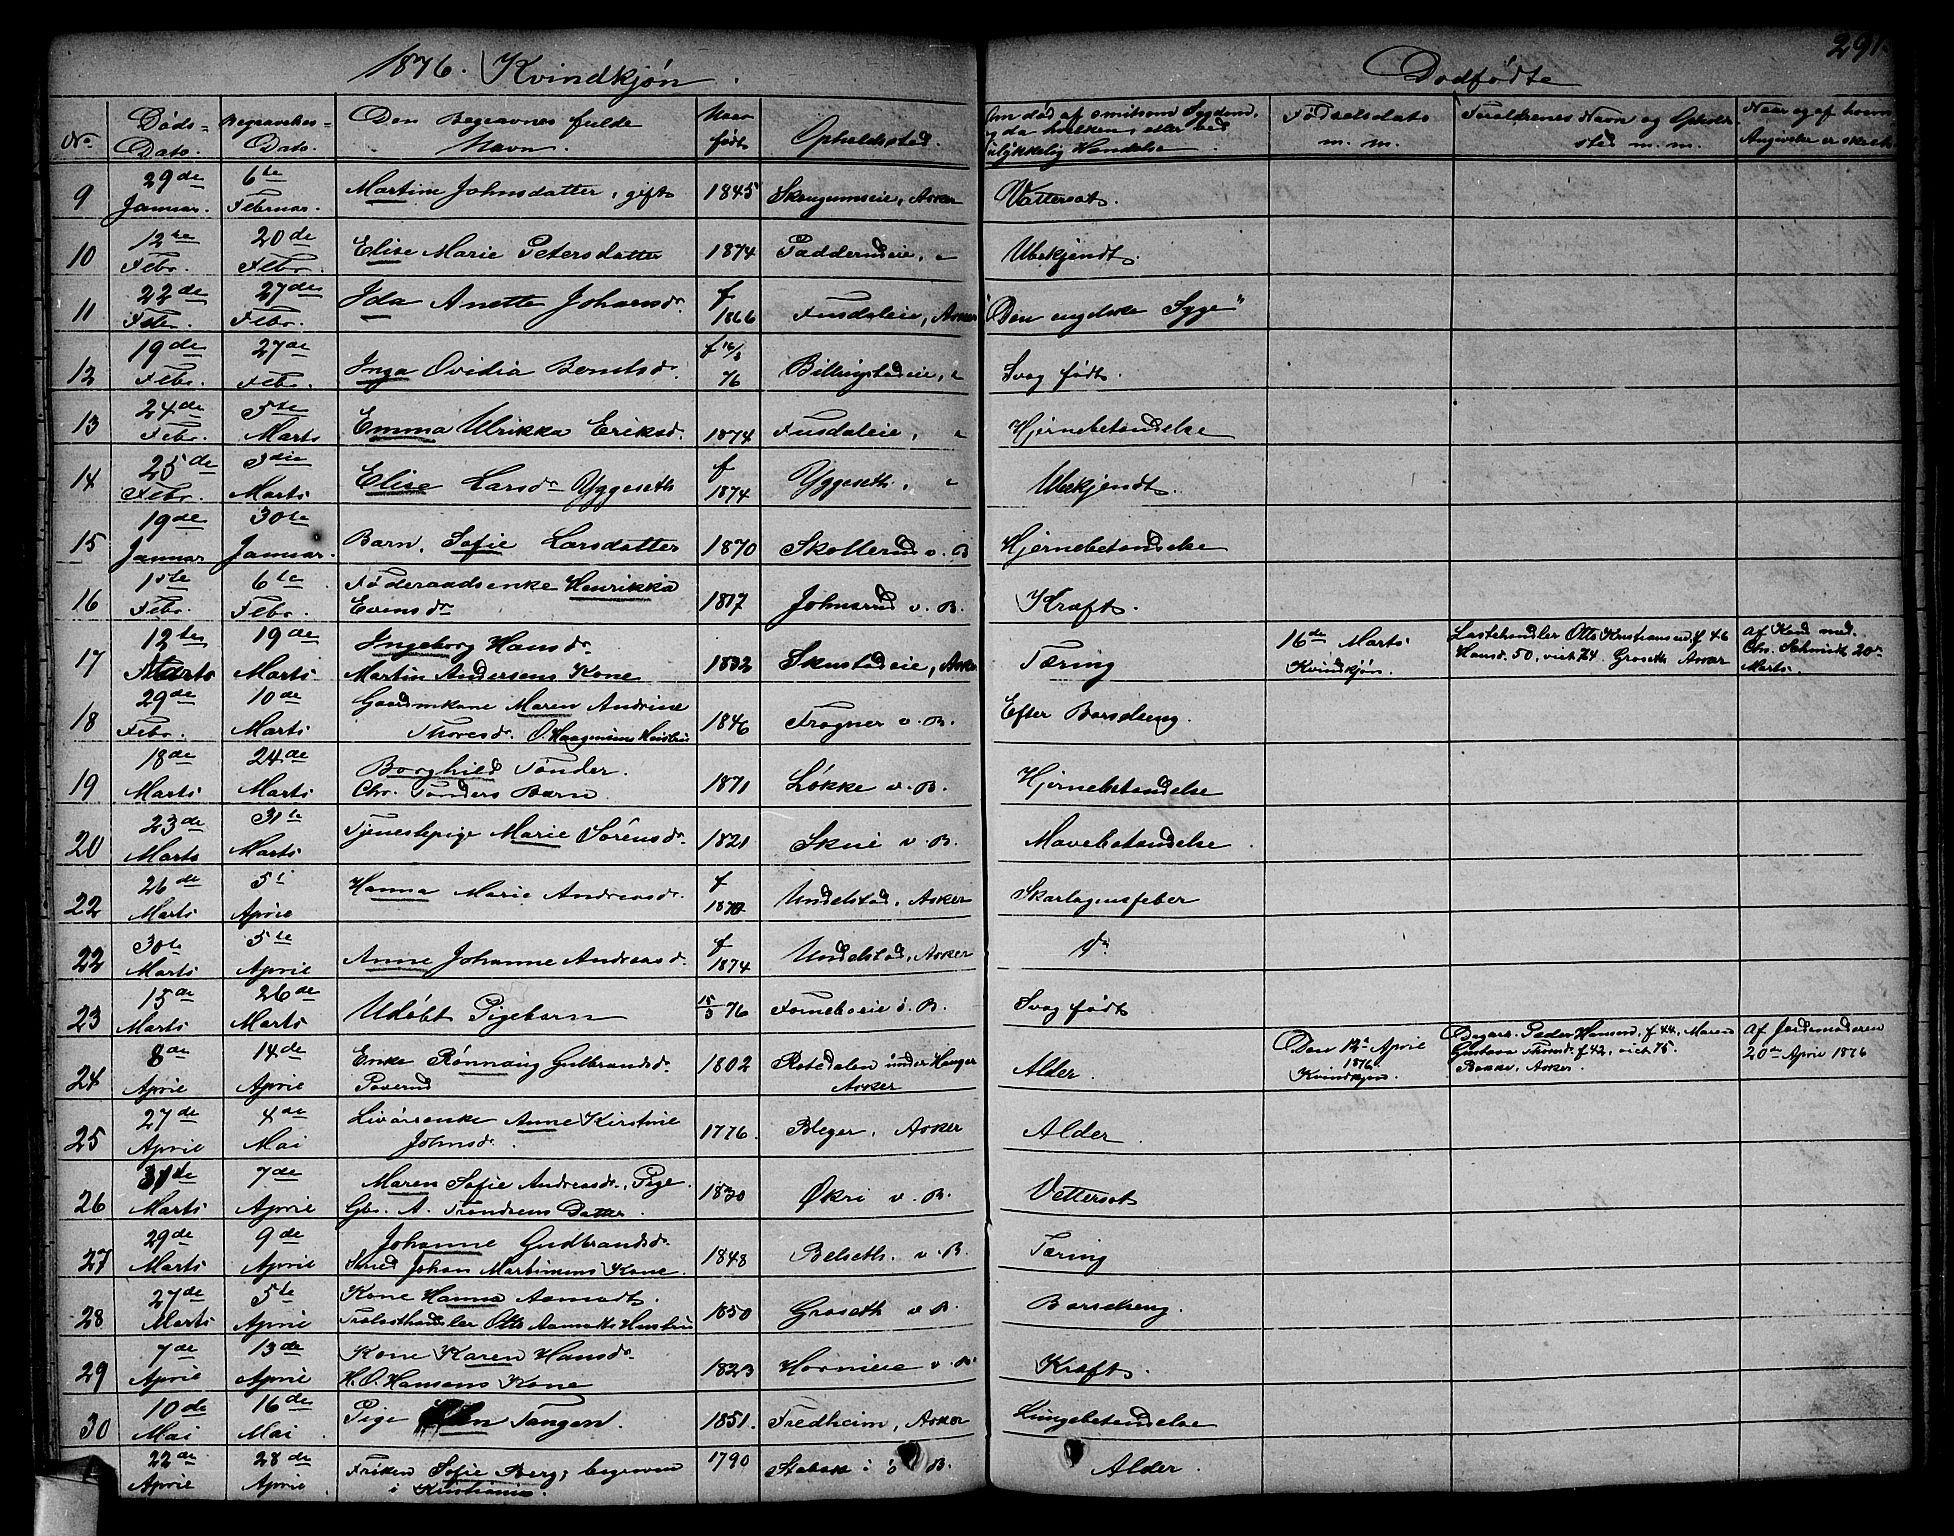 291.
1876. Kvindkjøn. Dødfødte
No Døds-Dato. Begravelses-Dato. Den Begravnes fulde Navn. Naar født Opholdssted. Om død af smitsom Sygdom, og da hvilken, eller ved ulykkelig Hændelse. Fødselsdato m. m. Forældrenes Navn og Opholdssted m. m. Naar og af hvem Angivelse er skeet
9 29de Januar. 6te Februar. Martine Johnsdatter, gift 1845 Skougumseie, Asker Vattersot.
10 12te Febr. 20de Febr. Elise Marie Petersdatter 1874 Padderudeie, " Ubekjendt.
11 22de Febr. 27de Febr. Ida Anette Johansdr f 1866 Fusdaleie, Asker "Den engelske Syge"
12 19de Febr. 27de Febr. Inga Ovidia Berntsdr. f 16/3 76 Billingstadeie, " Svag født.
13 24de Febr. 5te Marts Emma Ulrikka Eriksd. 1874 Fusdaleie, " Hjernebetændelse
14 25de Febr. 3die Marts Elise Larsdr Yggeseth f 1874 Yggeseth, " Ubekjendt.
15 19de Januar 30te Januar. Barn, Sofie Larsdatter 1870 Skollerud v. B Hjernebetændelse
16 1ste Febr. 6te Febr. Føderaadsenke Henrikka Evensdr 1817 Johnsrud v. B. Kræft.
17 12te Marts 19de Marts Ingeborg Hansdr Martin Andersens Kone 1832 Skustadeie, Asker Tæring 16de Marts Kvindkjøn. Lastehandler Otto Kristiansen, f. 46 Hansd. 50, viet 74. Groseth Asker af Kand med. Chr. Schmidt 20de Marts.
18 29de Febr. 10de Marts Gaardmkone Maren Andrine Thoresdr. O. Haagensens Hustru 1846 Frogner v. B. Efter Barselseng.
19 18de Marts 24de Marts Borghild Tønder. Chr. Tønders Barn. 1871 Løkke v. B. Hjernebetændelse
20 23de Marts 31te Marts Tjenestepige Marie Sørensdr. 1821 Skui v. B. Mavebetændelse.
22 26de Marts 5t Aprie Hanna Marie Andreasdr. f 1870 Undelstad, Asker Skarlagensfeber
22 30te Marts 5te Aprie Anne Johanne Andreasd. f 1874 Undelstad, Asker do
23 15de Marts 26de Marts Udøbt Pigebarn 15/3 76 Forneboeie ø. B. Svag født
24 8de Aprie 14de Aprie Enke Rønnaug Gulbrandsdr. Poverud 1802 Rotsdalen under Hauger Asker Alder. Den 12te April 1876 Kvindkjøn. Bagers. Peder Hansen, f. 44, Maren Gustava Thomdr. f. 42, viet 75. Bakke, Asker. af Jordemoderen 20de April 1876
25 27de Aprie 4de Mai Livørsenke Anne Kirstine Johnsdr. 1776. Bleger, Asker Alder.
26 31te Marts 7de Aprie Maren Sofie Andreasdr., Pige. Gbr. A. Trondsens Datter. 1830 Økri v. B. Vettersot
27 29de Marts 9de Aprie Johanne Gudbrandsdr. Smed Johan Martinsens Kone. 1848 Belseth v. B. Tæring
28 27de Marts 5te Aprie Kone Hanna Aamodt. Trælasthandler Otto Aamodts Hustru 1850 Groseth v. B. Barselseng.
29 7de Aprie 13de Aprie Kone Karen Hansdr. H. O. Hansens Kone 1823 Hornieie v. B. Kræft.
30 10de Mai 16de Mai Pige Tangen. 1851. Fredheim, Asker Lungebetændelse
22de Aprie 28de Aprie. Frøken Sofie Berg, begraven i Kristiania. 1790 Stabæk i ø. B. Alder.